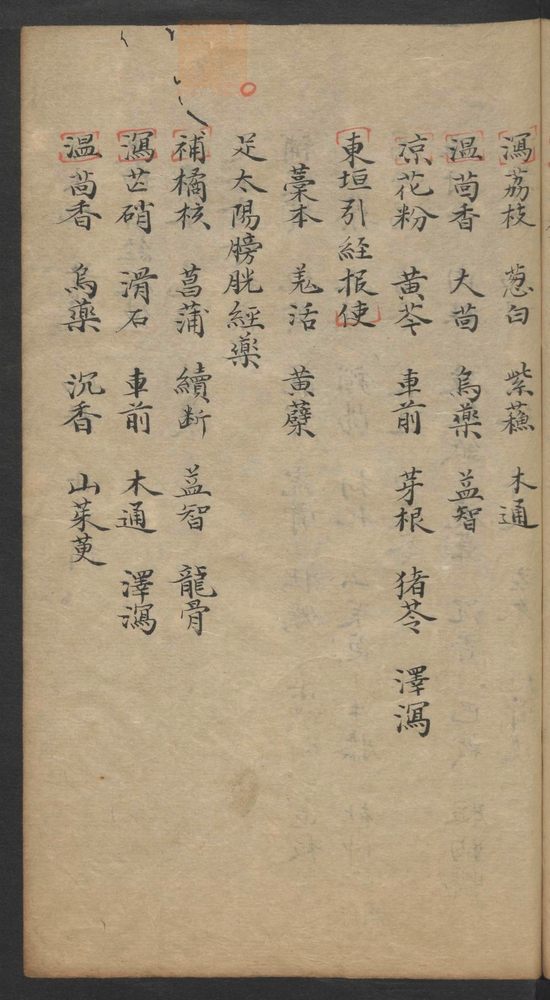 瀉荔枝 葱白 紫蘓 木通
温茴香 大茴 烏藥 益智
凉花粉 黄芩 車前 芽根 猪苓 澤瀉
東垣引經报使
藁本 羌活 黄蘗
足太陽膀胱經藥
補橘核 菖蒲 續断 益智 龍骨
瀉芒硝 滑石 車前 木通 澤瀉
温茴香 烏藥 沉香 山茱萸